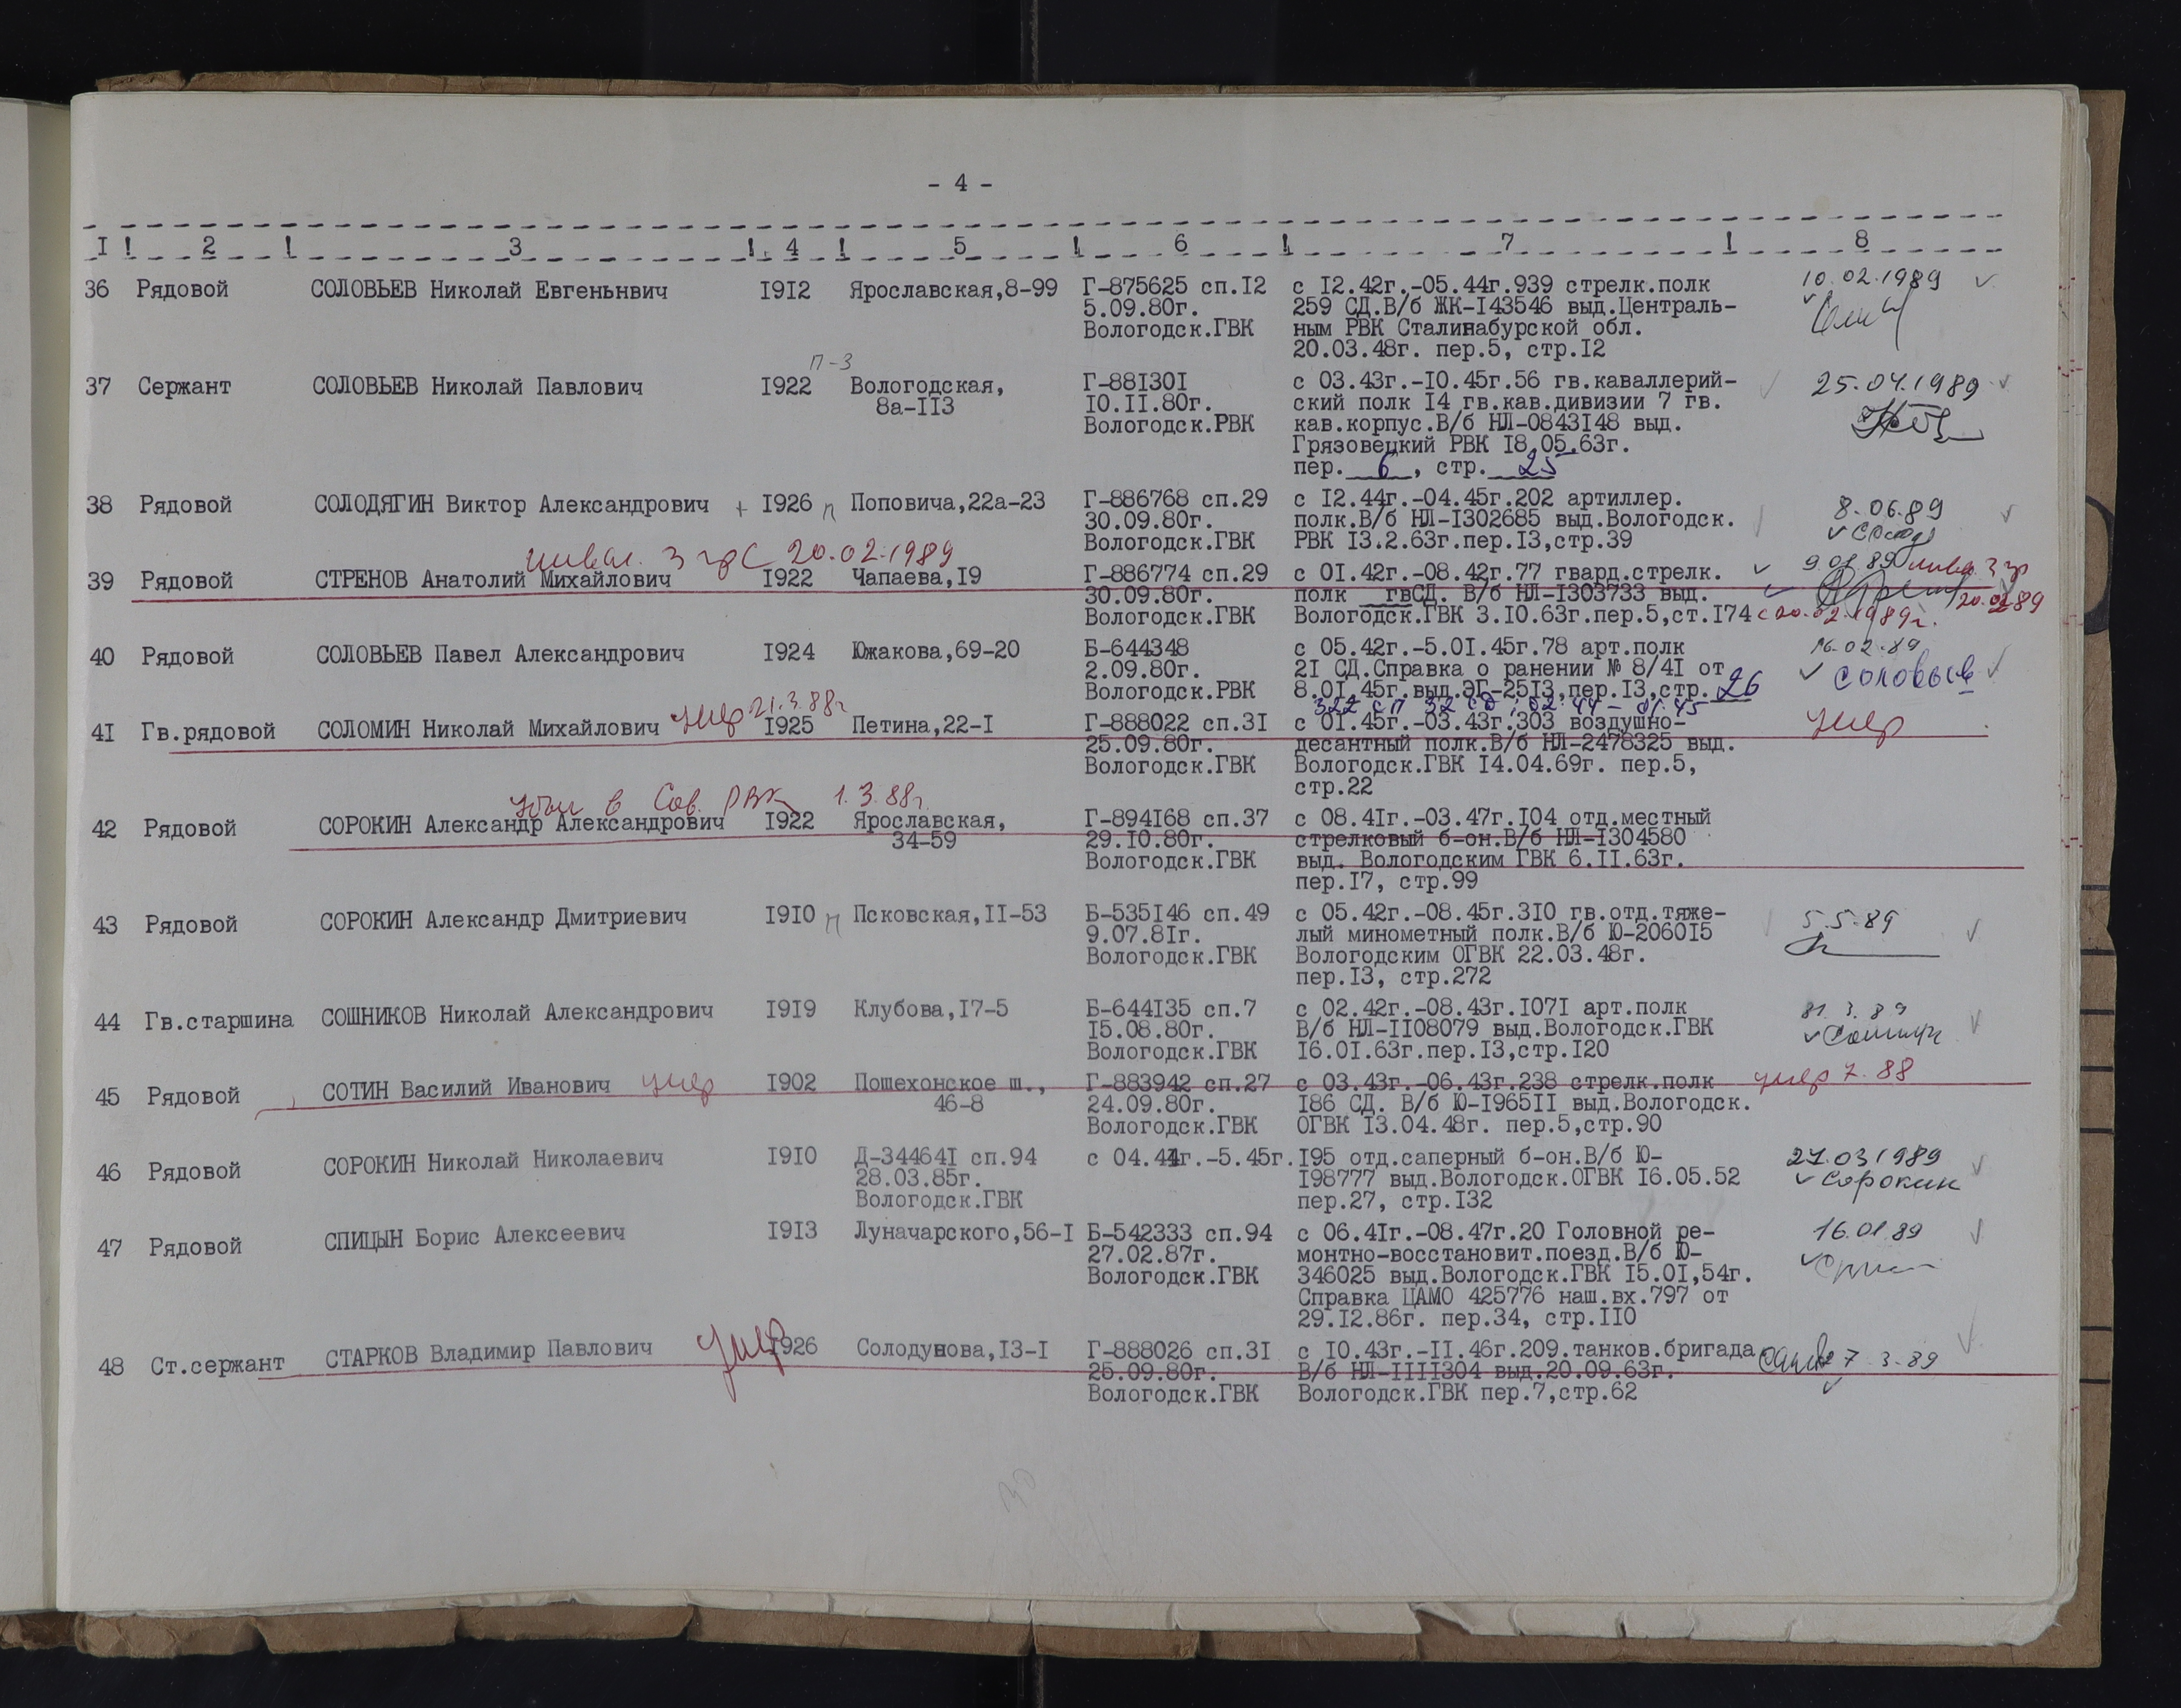 - 4 -
I ! 2 ! 3 ! 4 ! 5 ! 6 ! 7 ! 8
36 Рядовой СОЛОВЬЕВ Николай Евгеньнвич I9I2 Ярославская,8-99 Г-875625 сп.I2 с I2.42г.-05.44г.939 стрелк.полк 10.02.1989
5.09.80г. 259 СД.В/б ЖК-I43546 выд.Централь-
Вологодск.ГВК ным РВК Сталинабурской обл.
20.03.48г. пер.5, стр.I2
п-3
37 Сержант СОЛОВЬЕВ Николай Павлович I922 Вологодская, Г-88I30I с 03.43г.-I0.45г.56 гв.каваллерий- 25.04.1989
8а-II3 I0.II.80г. ский полк I4 гв.кав.дивизии 7 гв.
Вологодск.РВК кав.корпус.В/б НЛ-0843I48 выд.
Грязовецкий РВК I8.05.63г.
пер. 6, стр. 25
38 Рядовой СОЛОДЯГИН Виктор Александрович + I926 п Поповича,22а-23 Г-886768 сп.29 с I2.44г.-04.45г.202 артиллер. 8.06.89
30.09.80г. полк.В/б НЛ-I302685 выд.Вологодск.
Вологодск.ГВК РВК I3.2.63г.пер.I3,стр.39
инвал. 3 гр С 20.02.1989
39 Рядовой СТРЕНОВ Анатолий Михайлович I922 Чапаева,I9 Г-886774 сп.29 с 0I.42г.-08.42г.77 гвард.стрелк. инва. 3 гр
30.09.80г. полк гвСД. В/б НЛ-I303733 выд.
Вологодск.ГВК Вологодск.ГВК 3.I0.63г.пер.5,ст.I74 с 20.02.1989г.
40 Рядовой СОЛОВЬЕВ Павел Александрович I924 Южакова,69-20 Б-644348 с 05.42г.-5.0I.45г.78 арт.полк 16.02.89
2.09.80г. 2I СД.Справка о ранении № 8/4I от Соловьев
Вологодск.РВК 8.0I.45г.выд.ЭГ-25I3,пер.I3,стр. 26
322 сп 32 сд; 02.44 - 01.45
4I Гв.рядовой СОЛОМИН Николай Михайлович умер 21.3.88г I925 Петина,22-I Г-888022 сп.3I с 0I.45г.-03.43г.303 воздушно- умер
25.09.80г. десантный полк.В/б НЛ-2478325 выд.
Вологодск.ГВК Вологодск.ГВК I4.04.69г. пер.5,
стр.22
убыл в Сов. РВК 1.3.88г.
42 Рядовой СОРОКИН Александр Александрович I922 Ярославская, Г-894I68 сп.37 с 08.4Iг.-03.47г.I04 отд.местный
34-59 29.I0.80г. стрелковый б-он.В/б НЛ-I304580
Вологодск.ГВК выд. Вологодским ГВК 6.II.63г.
пер.I7, стр.99
43 Рядовой СОРОКИН Александр Дмитриевич I9I0 п Псковская,II-53 Б-535I46 сп.49 с 05.42г.-08.45г.3I0 гв.отд.тяже- 5.5.89
9.07.8Iг. лый минометный полк.В/б Ю-2060I5
Вологодск.ГВК Вологодским ОГВК 22.03.48г.
пер.I3, стр.272
44 Гв.старшина СОШНИКОВ Николай Александрович I9I9 Клубова,I7-5 Б-644I35 сп.7 с 02.42г.-08.43г.I07I арт.полк
I5.08.80г. В/б НЛ-II08079 выд.Вологодск.ГВК
Вологодск.ГВК I6.0I.63г.пер.I3,стр.I20
45 Рядовой СОТИН Василий Иванович умер I902 Пошехонское ш., Г-883942 сп.27 с 03.43г.-06.43г.238 стрелк.полк умер 7.88
46-8 24.09.80г. I86 СД. В/б Ю-I965II выд.Вологодск.
Вологодск.ГВК ОГВК I3.04.48г. пер.5,стр.90
46 Рядовой СОРОКИН Николай Николаевич I9I0 Д-34464I сп.94 с 04.44г.-5.45г.I95 отд.саперный б-он.В/б Ю- 27.03 1989
28.03.85г. I98777 выд.Вологодск.ОГВК I6.05.52 Сорокин
Вологодск.ГВК пер.27, стр.I32
47 Рядовой СПИЦЫН Борис Алексеевич I9I3 Луначарского,56-I Б-542333 сп.94 с 06.4Iг.-08.47г.20 Головной ре- 16.01.89
27.02.87г. монтно-восстановит.поезд.В/б Ю-
Вологодск.ГВК 346025 выд.Вологодск.ГВК I5.0I,54г.
Справка ЦАМО 425776 наш.вх.797 от
29.I2.86г. пер.34, стр.II0
48 Ст.сержант СТАРКОВ Владимир Павлович умер I926 Солодунова,I3-I Г-888026 сп.3I с I0.43г.-II.46г.209.танков.бригада 7.3.89
25.09.80г. В/б НЛ-IIII304 выд.20.09.63г.
Вологодск.ГВК Вологодск.ГВК пер.7,стр.62